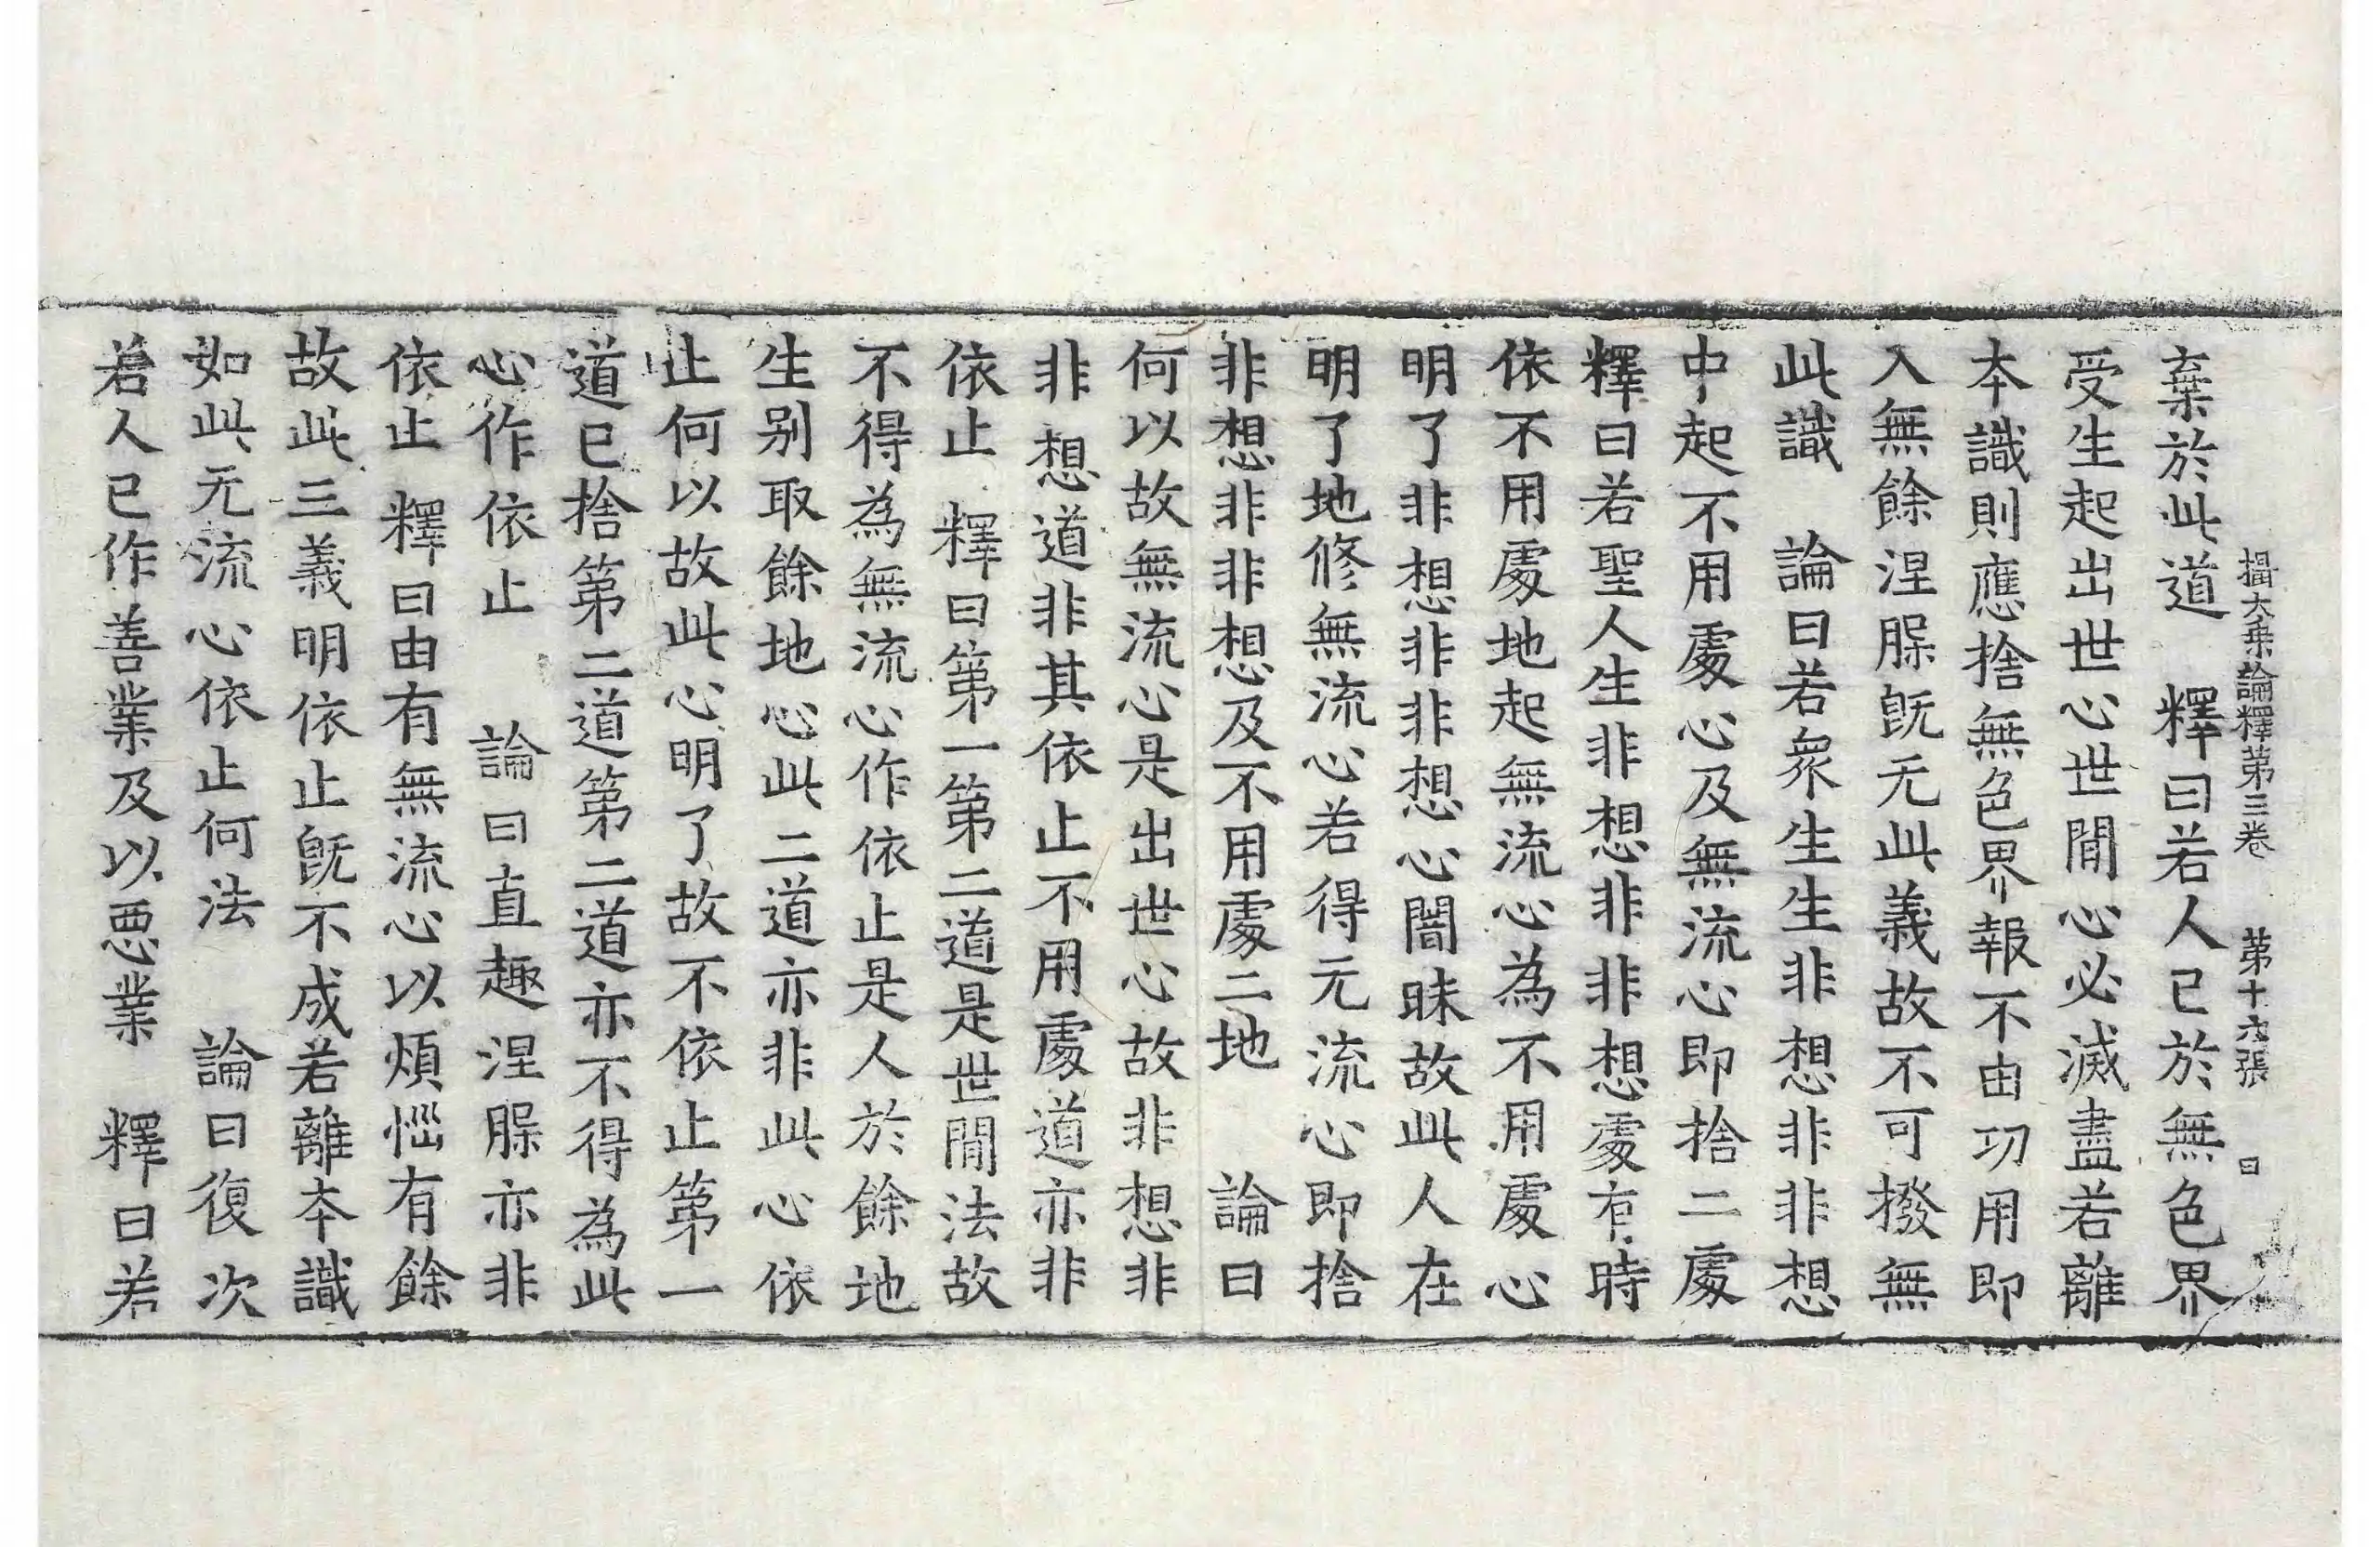 攝大乗論釋第三卷　第十六張　日
棄於此道　釋曰若人已於無色界
受生起出世心世間心必滅盡若離
本識則應捨無色界報不由功用即
入無餘涅脲旣无此義故不可撥無
此識　論曰若衆生生非想非非想
中起不用處心及無流心即捨二處
釋曰若聖人生非想非非想處有時
依不用處地起無流心為不用處心
明了非想非非想心闇昧故此人在
明了地修無流心若得无流心即捨
非想非非想及不用處二地　論曰
何以故無流心是出世心故非想非
非想道非其依止不用處道亦非
依止　釋曰第一第二道是世間法故
不得為無流心作依止是人於餘地
生别取餘地心此二道亦非此心依
止何以故此心明了故不依止第一
道已捨第二道第二道亦不得為此
心作依止　論曰直趣涅脲亦非
依止　釋曰由有無流心以煩惱有餘
故此三義明依止旣不成若離本識
如此无流心依止何法　論曰復次
若人已作善業及以悪業　釋曰若